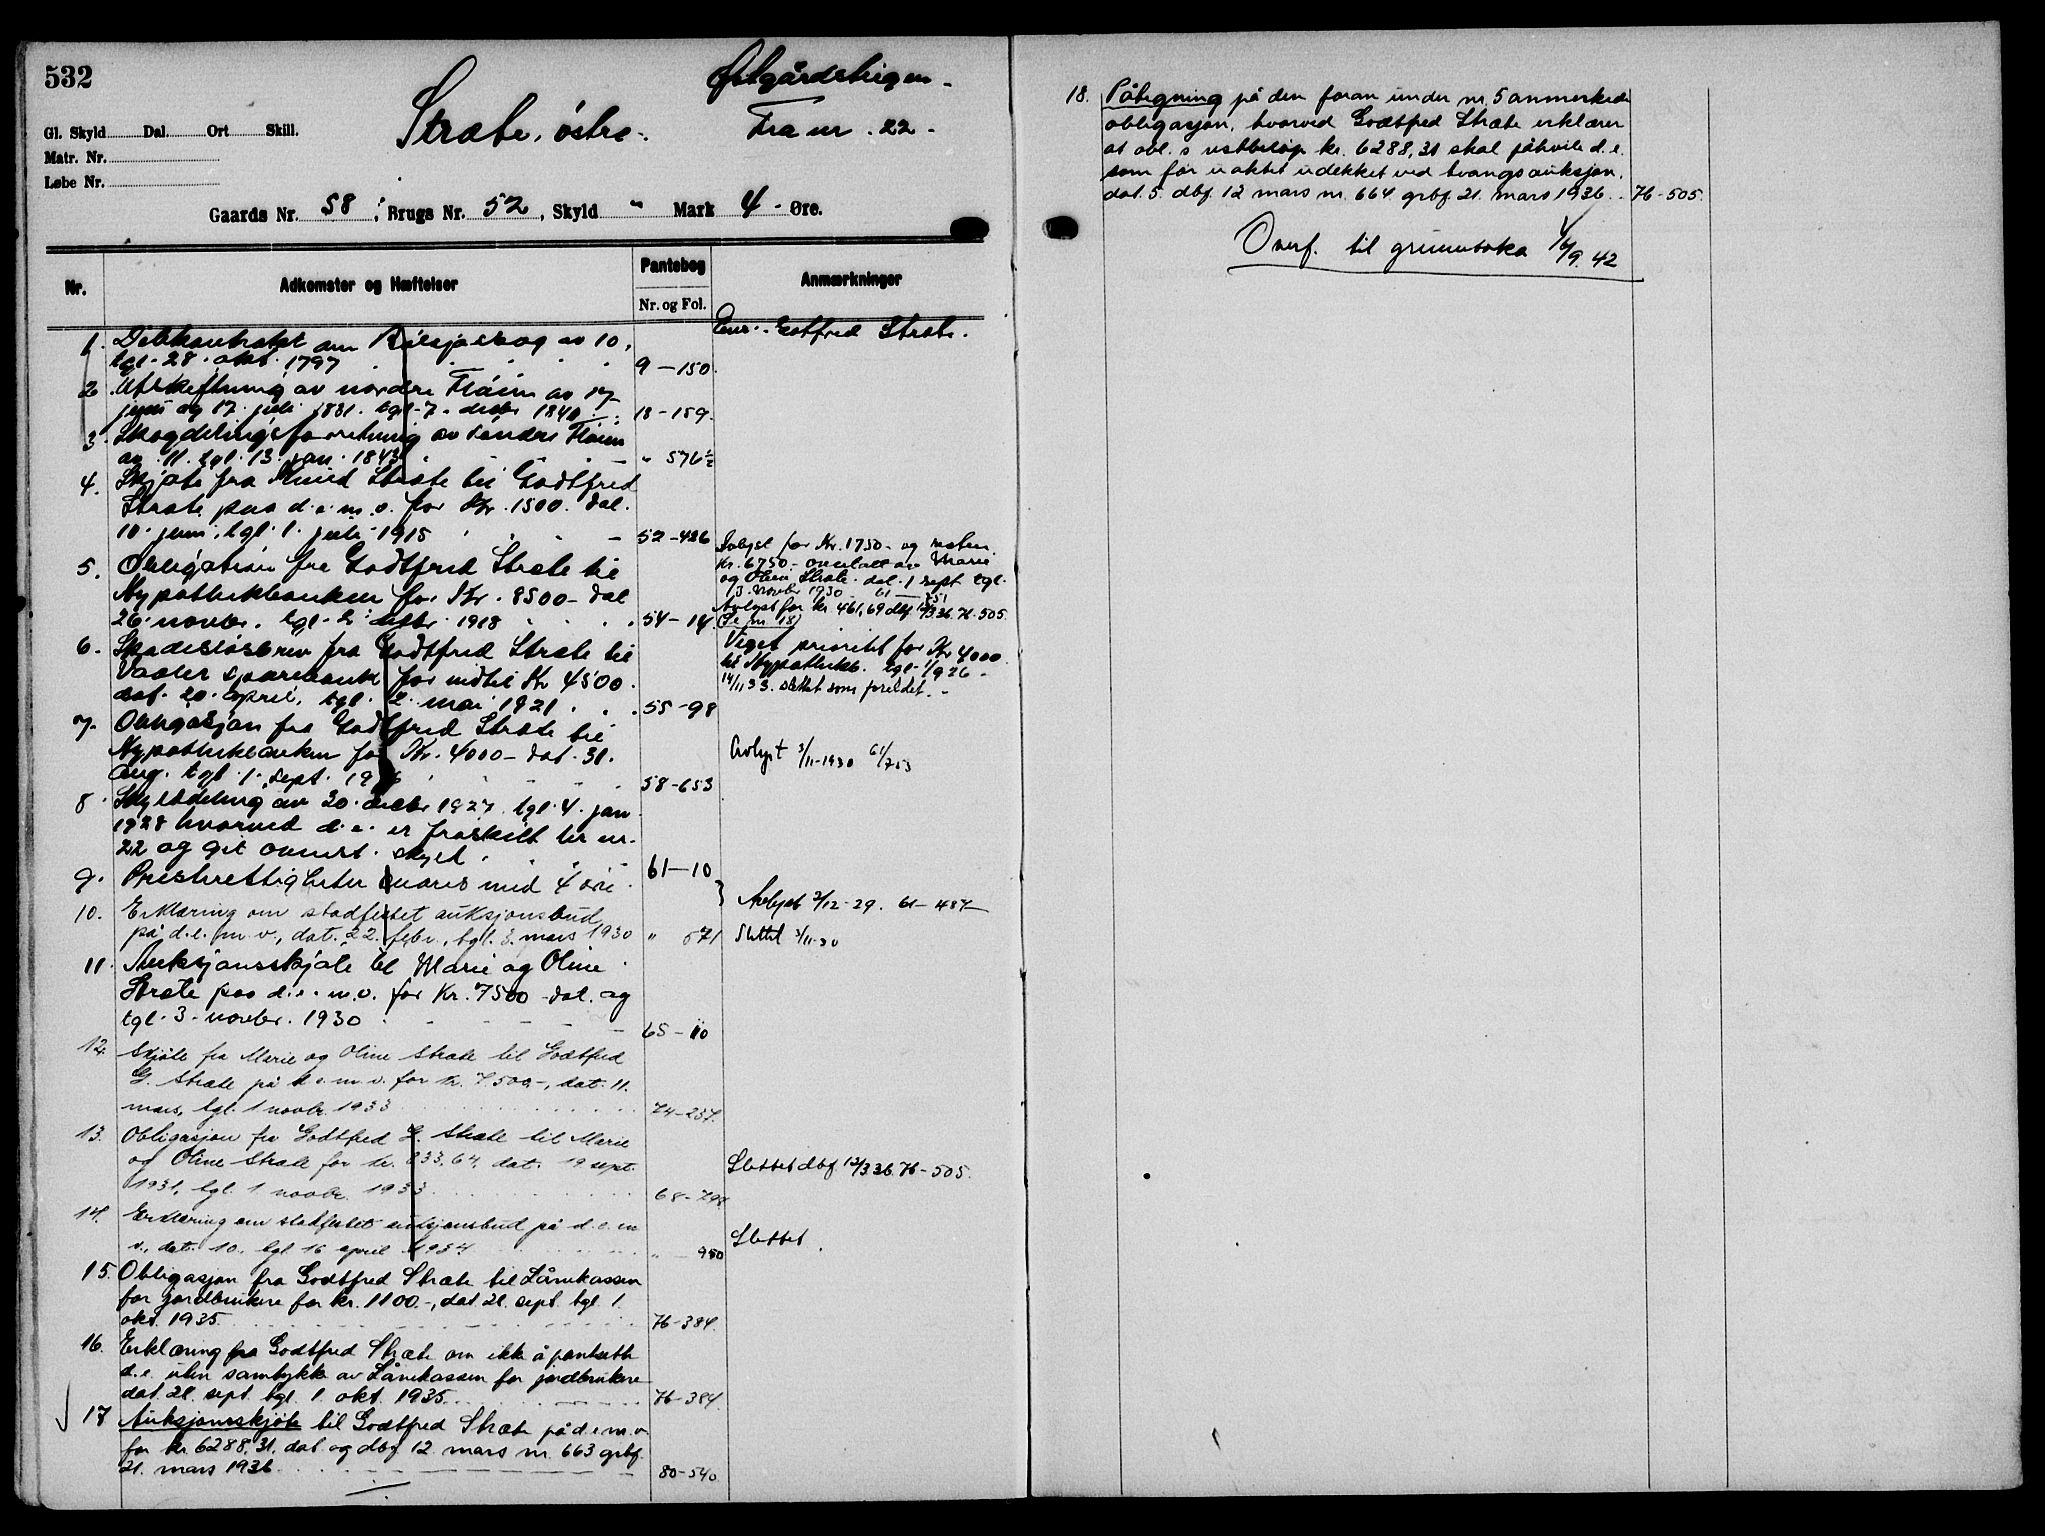 532
Østgårdstrigen -
Stræte, østre.
Fra nr. 22.
Gl. Skyld Dal. Ort Skill.
Matr. Nr.
Løbe Nr.
Gaards Nr. 58, Brugs Nr. 52, Skyld " Mark 4 - Øre.
Nr.
Adkomster og Hæftelser
Pantebog
Nr. og Fol.
Anmærkninger
Eier: Gotfred Stræte.
1. Delekontrakt om skog av 10,
tgl. 28. okt. 1797 9-150.
2. Utskiftning av nordre Flåen av 17
juni og 17. juli 1831. tgl. 7. decbr 1840 13-159.
3. Skogdelingsforretning av søndre Flåen
av 11. tgl. 13. jan. 1843 " 576½
4. Skjøte fra Amund Stræte til Godtfred
Stræte paa d.e.m.v. for Kr. 1500. Dat.
10. juni, tgl. 1. juli 1915 52-426
5. Obligation fra Godtfred Stræte til
Hypothekbanken for Kr. 8500- Dat
26. novbr. tgl. 2. decbr. 1918 54-14.
Avlyst for Kr. 1750.- og resten
Kr. 6750.- overlatt av Marie
og Oline Stræte. dat. 1 sept. tgl.
3. novbr 1930 61-751
Avlyst for kr. 461,69 dbf. 12/3 36. 76-505
(Se nr. 18)
6. Skadesløsbrev fra Godtfred Stræte til
Vaaler sparebank for indtil Kr 4500.
dat. 20. april, tgl. 2. mai 1921 55-98
Viget prioritet for Kr 4000
til Hypothekb. tgl. 1/9 26 -
14/11 33. slettet som foreldet. -
7. Obligasjon fra Godtfred Stræte til
Hypothekbanken for Kr. 4000- dat. 31.
aug. tgl. 1. sept. 1926 58-653
Avlyst 3/11-1930 61/753
8. Skylddeling av 30. decbr 1927. tgl. 4. jan
1928 hvorved d.e. er fraskilt br. nr.
22 og git ovennt. skyld. 61-10
9. Presterettigheter svares med 4 øre.
10. Erklæring om stadfestet auksjonsbud
på d.e. m.v., dat. 22. febr., tgl. 3. mars 1930 " 571
Avlyst 3/12-29. 61-487
Slettet 3/11-30
11. Auksjonsskjøte til Marie og Oline
Stræte paa d.e.m.v. for Kr. 7500 - dat. og
tgl. 3. novbr. 1930 65-110
12. Skjøte fra Marie og Oline Stræte til Godtfred
G. Stræte på d.e.m.v. for kr. 7500,-, dat. 11.
mars, tgl. 1 novbr. 1933 74-237.
13. Obligasjon fra Godtfred G. Stræte til Marie
og Oline Stræte for kr. 833,64, dat. 19 sept.
1931, tgl. 1 novbr. 1933 68-798
Slettet dbf. 12/3 36. 76-505.
14. Erklæring om stadfestet auksjonsbud på d.e.m.
v., dat. 10., tgl. 16 april 1934 " 950
Slettet.
15. Obligasjon fra Godtfred Stræte til Lånekassen
for jordbrukere for kr. 1100.-, dat. 21. sept. tgl. 1.
okt. 1935 76-384.
16. Erklæring fra Godtfred Stræte om ikke å pantsette
d.e. uten samtykke av Lånekassen for jordbrukere
dat. 21. sept. tgl. 1. okt. 1935 76-384.
17 Auksjonsskjøte til Godtfred Stræte på d.e.m.v.
for kr. 6288,31. dat. og dbf. 12 mars nr. 663 grbf.
21. mars 1936 80-540
18. Påtegning på den foran under nr. 5 anmerkede
obligasjon, hvorved Godtfred Stræte erklærer
at obl.s restbeløp kr. 6288,31 skal påhvile d.e.
som før uaktet udekket ved tvangsauksjon,
dat. 5. dbf. 12 mars nr. 664 grbf. 21. mars 1936 76-505.
Overf. til grunnboka 4/9. 42